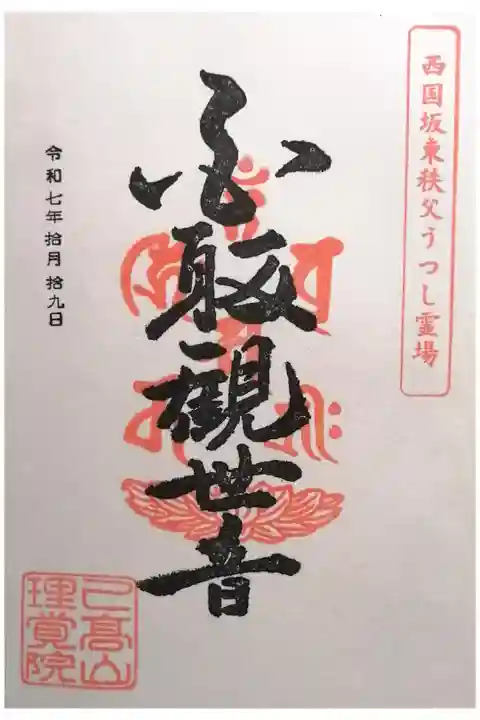 西国坂東秩父うつし霊場
觀世音
令和七年拾月拾九日
己髙山
理覚院